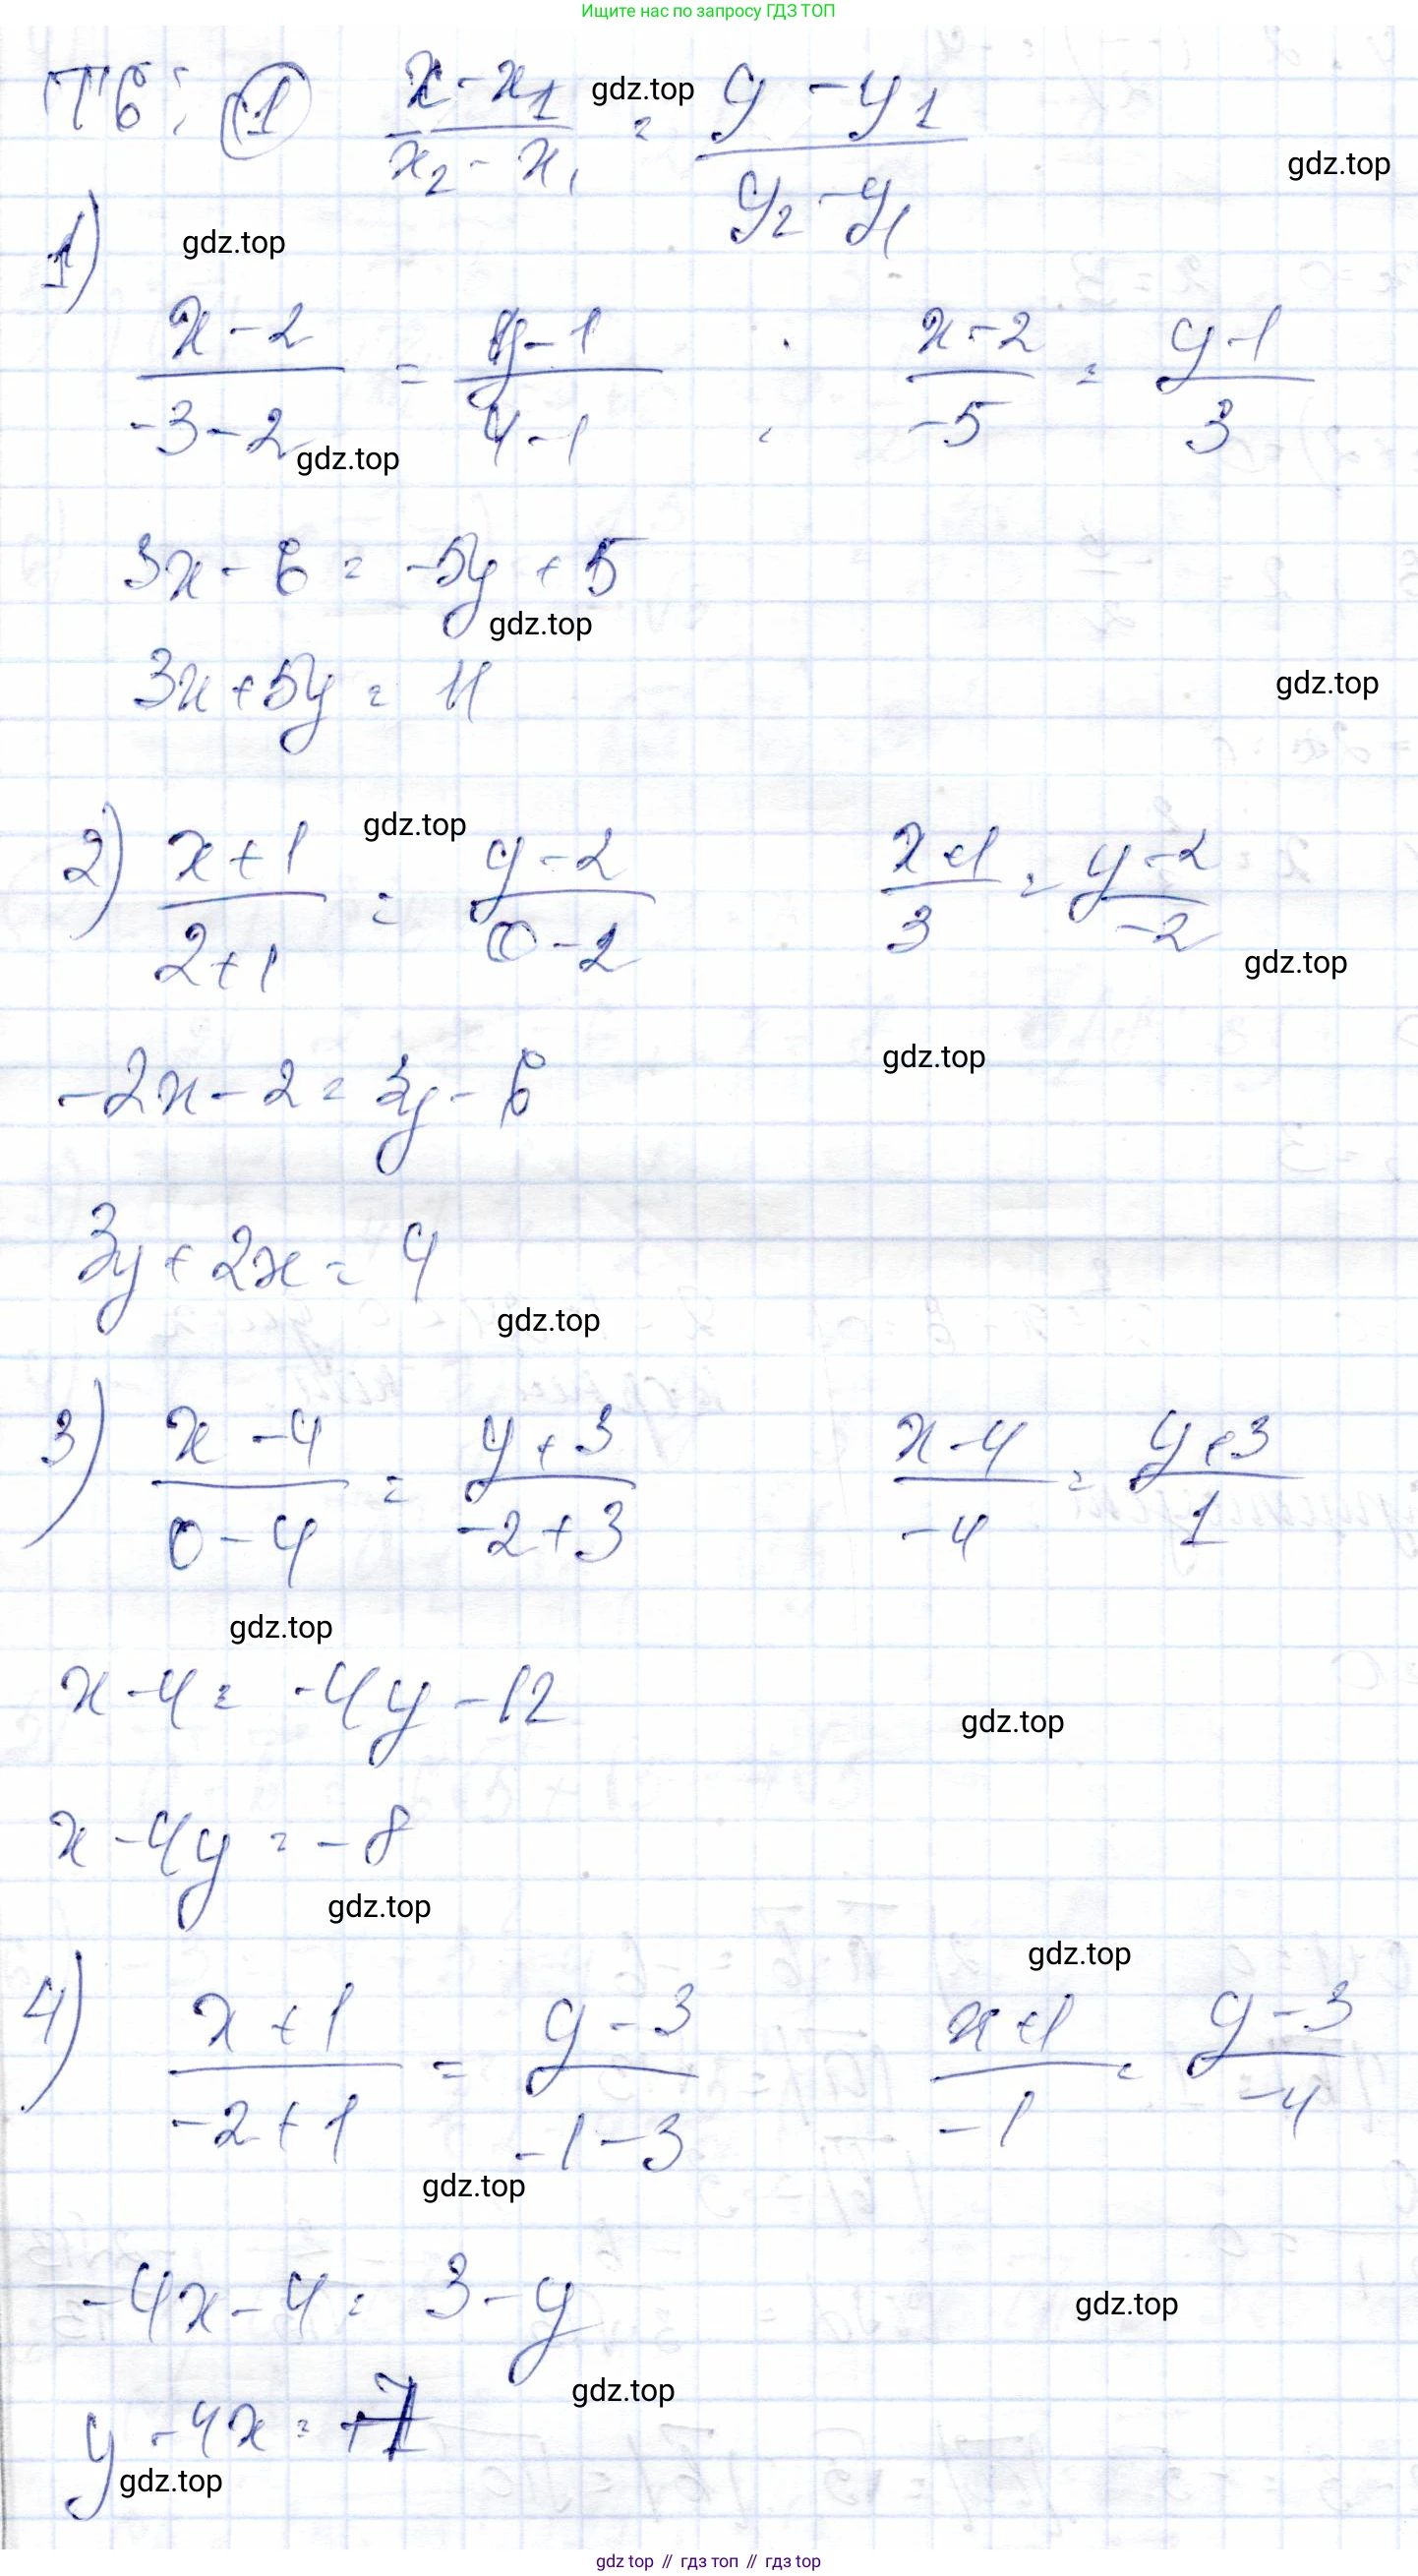 Ищите нас по запросу ГДЗ ТОП
ТБ: ① (x - x₁)/(x₂ - x₁) = (y - y₁)/(y₂ - y₁)
gdz.top
gdz.top
1)
gdz.top
(x - 2)/(-3 - 2) = (y - 1)/(4 - 1) (x - 2)/(-5) = (y - 1)/3
gdz.top
3x - 6 = -5y + 5
gdz.top
3x + 5y = 11
gdz.top
gdz.top
2) (x + 1)/(2 + 1) = (y - 2)/(0 - 2) (x + 1)/3 = (y - 2)/(-2)
gdz.top
gdz.top
-2x - 2 = 3y - 6
3y + 2x = 4
gdz.top
3) (x - 4)/(0 - 4) = (y + 3)/(-2 + 3) (x - 4)/(-4) = (y + 3)/1
gdz.top
x - 4 = -4y - 12
gdz.top
x - 4y = -8
gdz.top
gdz.top
4) (x + 1)/(-2 + 1) = (y - 3)/(-1 - 3) (x + 1)/(-1) = (y - 3)/(-4)
gdz.top
-4x - 4 = 3 - y
gdz.top
gdz.top
y - 4x = +7
gdz.top
gdz top // гдз топ // гдз top